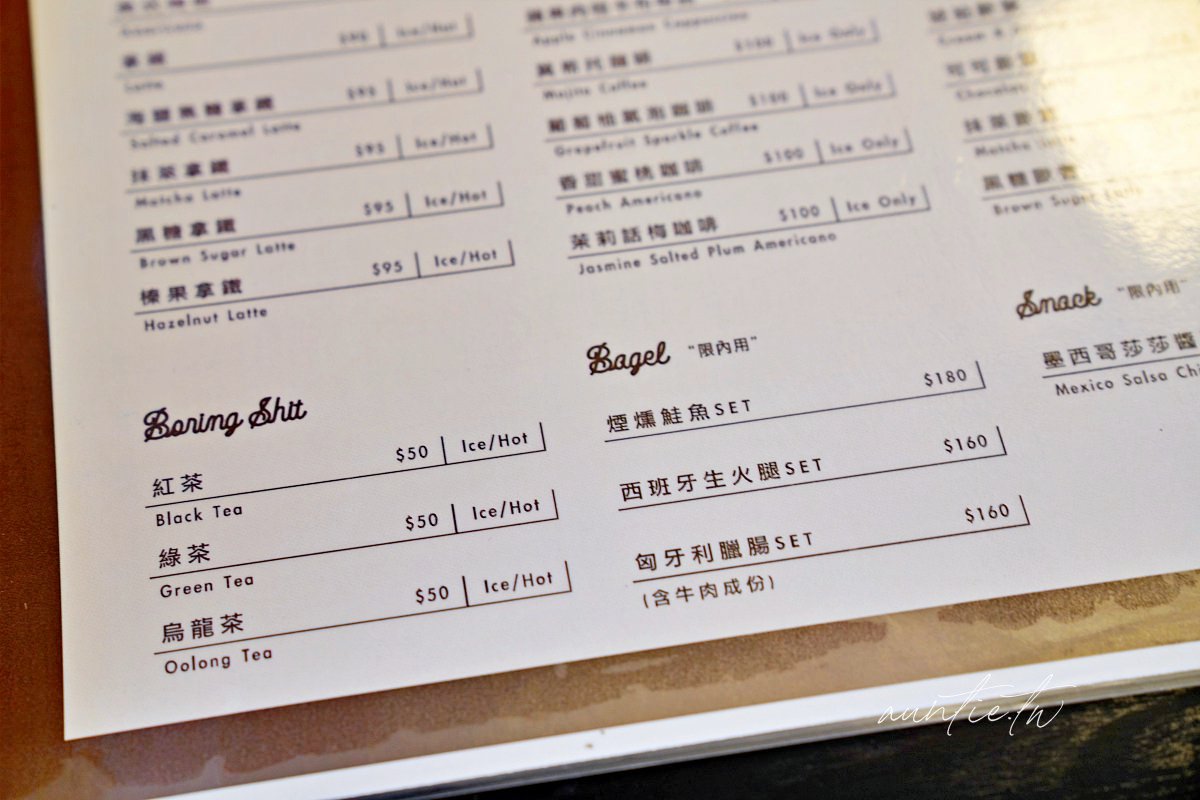 Latte
$95 | Ice/Hot
海鹽焦糖拿鐵
Salted Caramel Latte
$95 | Ice/Hot
抹茶拿鐵
Matcha Latte
$95 | Ice/Hot
黑糖拿鐵
Brown Sugar Latte
$95 | Ice/Hot
榛果拿鐵
Hazelnut Latte
$95 | Ice/Hot
Boring Shit
紅茶
$50 | Ice/Hot
Black Tea
綠茶
$50 | Ice/Hot
Green Tea
烏龍茶
$50 | Ice/Hot
Oolong Tea
Apple Cinnamon Cappuccino
Mojito Coffee
$100 | Ice Only
葡萄柚氣泡咖啡
Grapefruit Sparkle Coffee
$100 | Ice Only
香甜蜜桃咖啡
Peach Americano
$100 | Ice Only
茉莉話梅咖啡
$100 | Ice Only
Jasmine Salted Plum Americano
Bagel "限內用"
煙燻鮭魚SET
$180
西班牙生火腿SET
$160
匈牙利臘腸SET
$160
(含牛肉成份)
Matcha
Brown Sugar Latte
Snack "限內用"
墨西哥莎莎醬
Mexico Salsa
auntie.tw